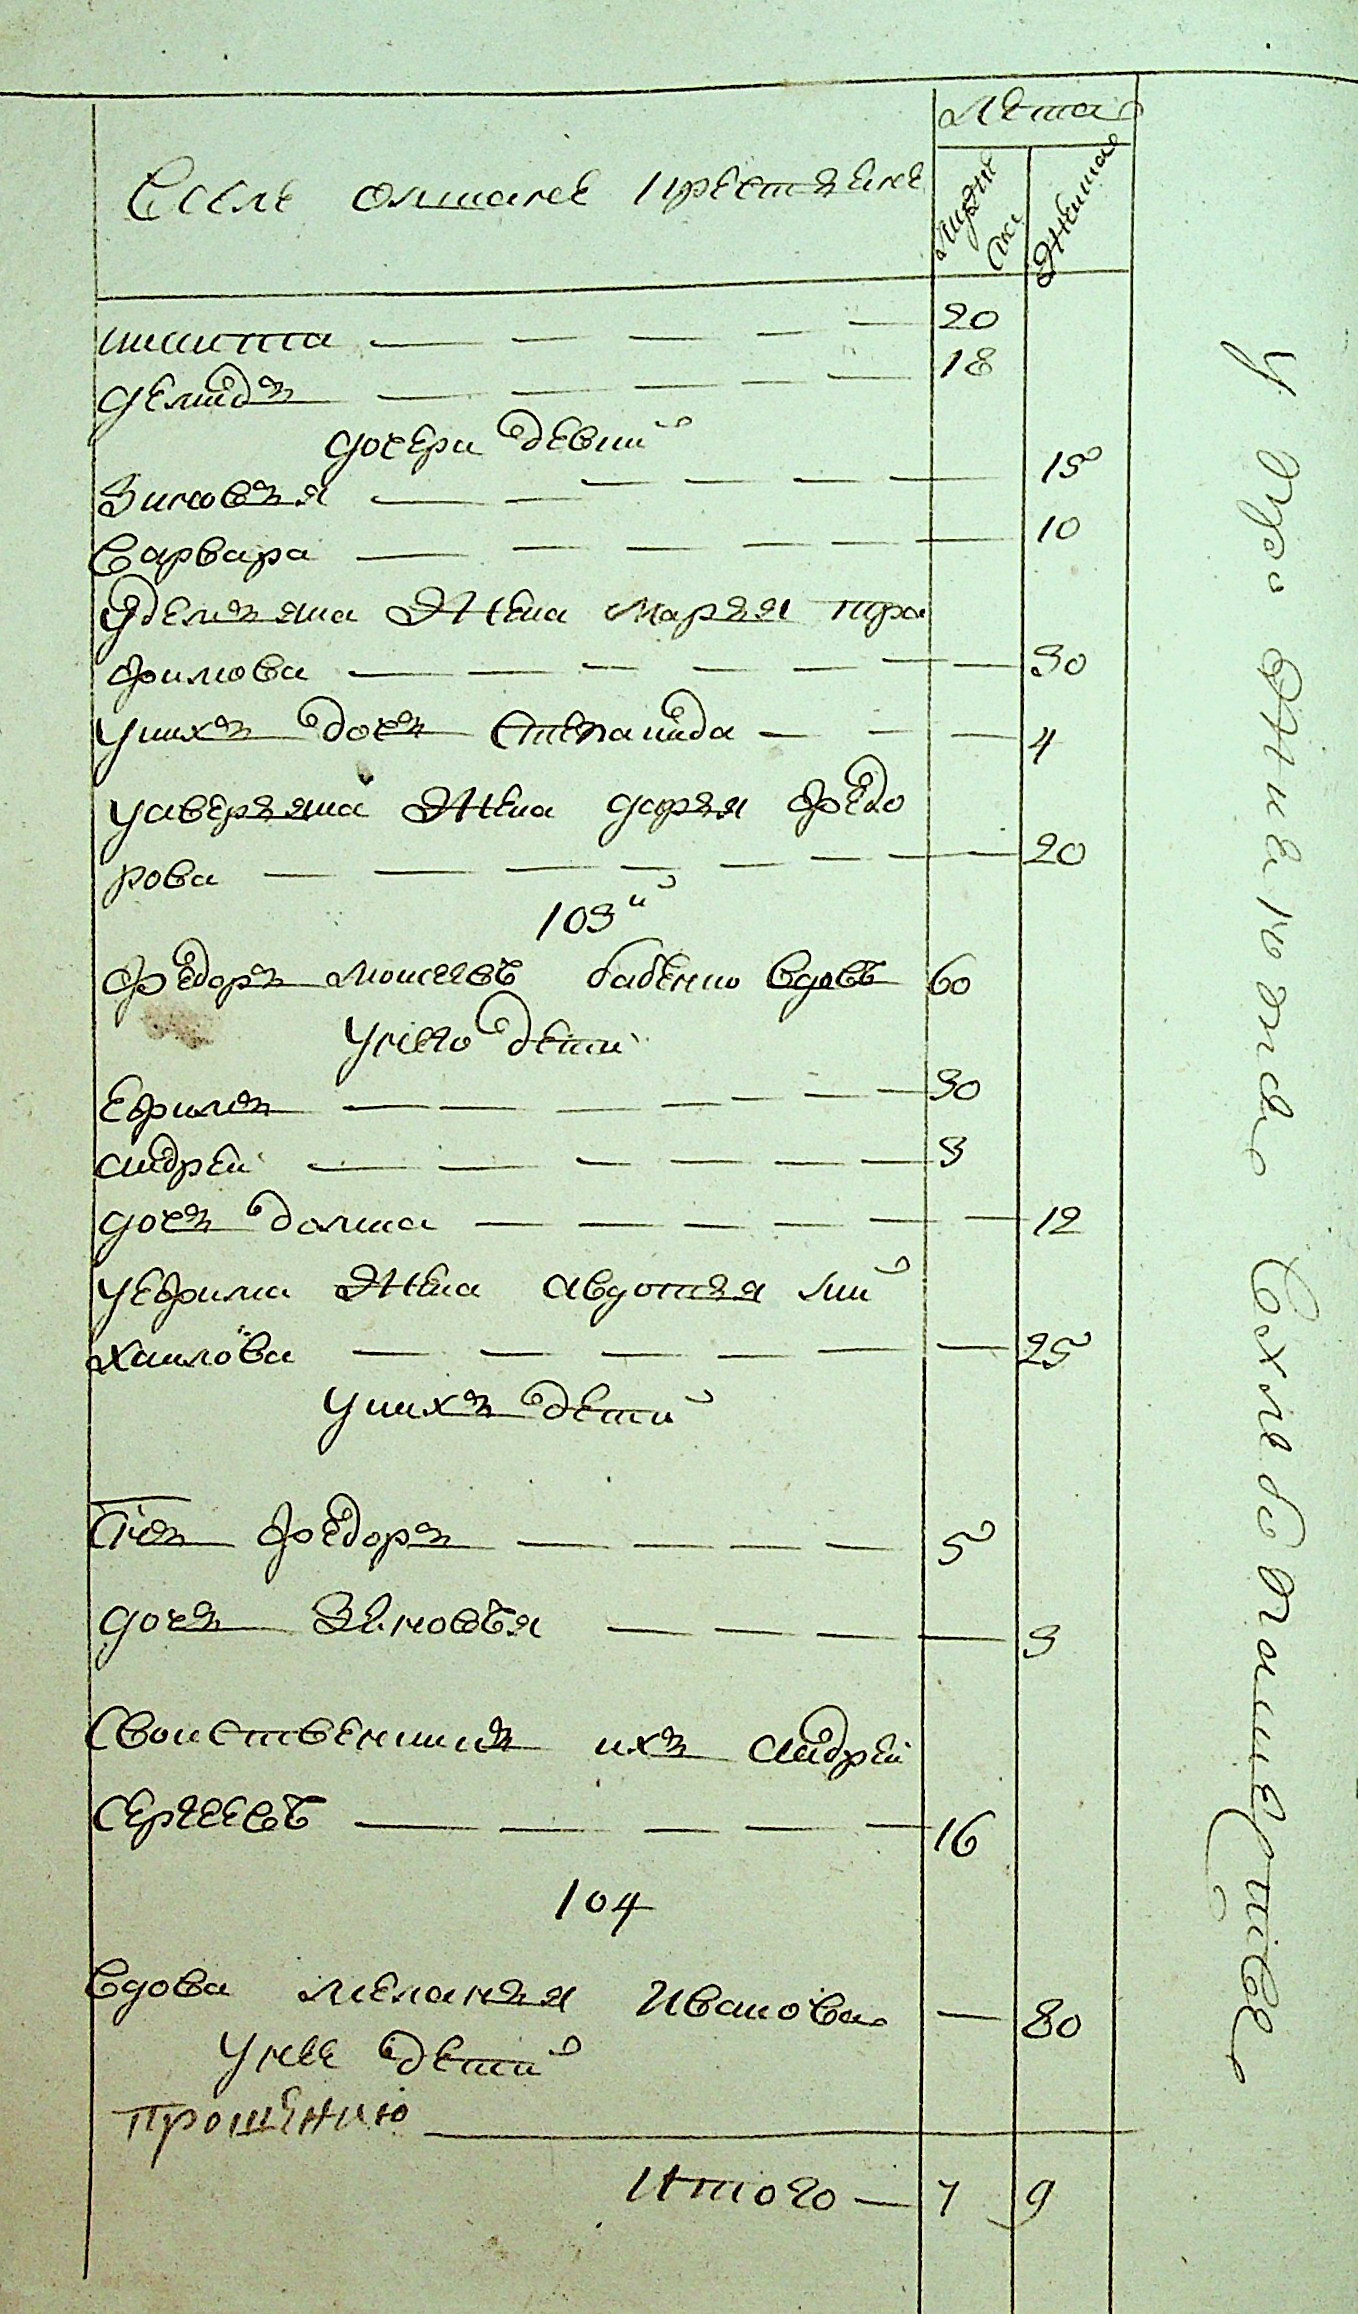 Лета
В селе олшанке крестьяне
мужес
ки
женска
никита — — — — — 20
демидъ — — — — — 18
дочери девки
Зиновъя — — — — — — 15
варвара — — — — — — 10
уделъяна жена маръя тро
фимова — — — — — — 30
унихъ дочь Степанида — — — 4
уаверъяна жена даръя федо
рова — — — — — — — 20
103й
федоръ моисеевъ бабенко вдовъ 60
унево дети
Ефимъ — — — — — — 30
андрей — — — — — — 3
дочь домна — — — — — — 12
уефима жена авдотъя ми
хаилова — — — — — — 25
унихъ дети
Снъ федоръ — — — — 5
дочь Зѣновъя — — — — 3
Своиственникъ ихъ андрей
Сергеевъ — — — — — 16
104
вдова меланъя Ивановва — 80
унее дети
прошению
Итого — 7 9